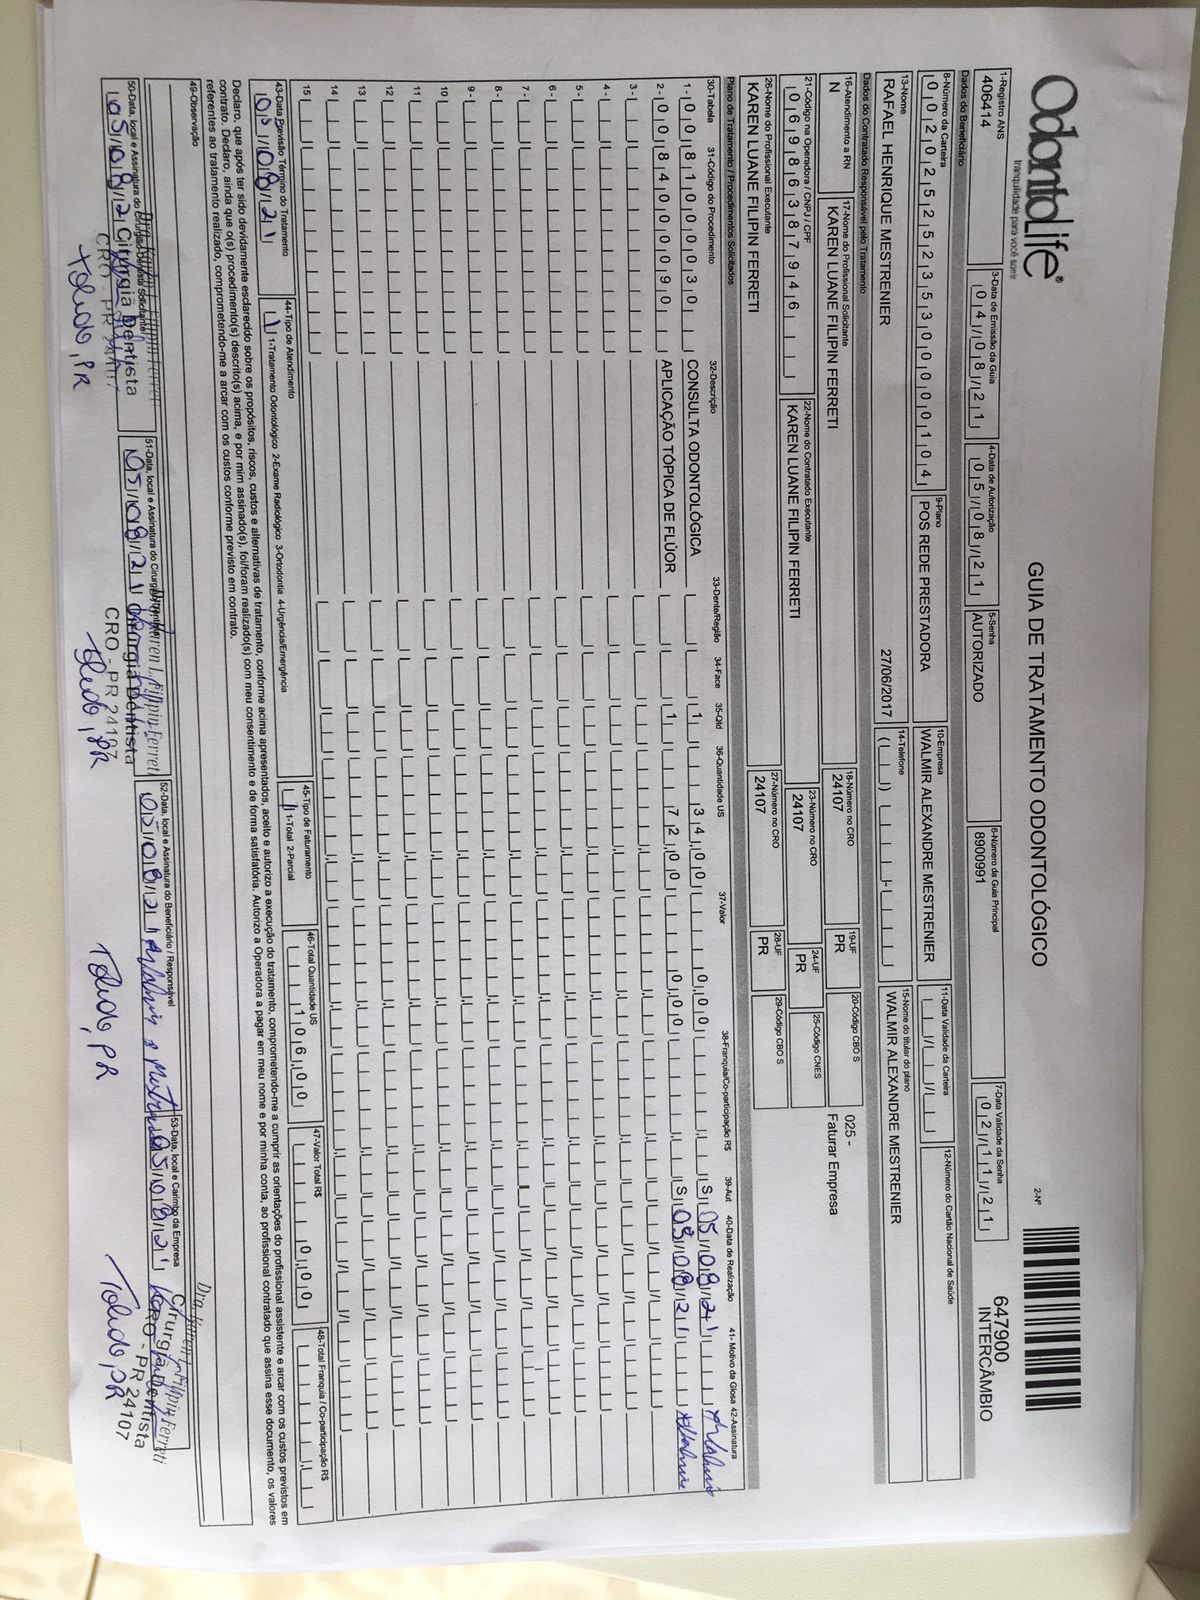 OdontoLife®
tranquilidade para você sorrir
GUIA DE TRATAMENTO ODONTOLÓGICO
2-Nº
647900
INTERCÂMBIO
1-Registro ANS
406414
3-Data de Emissão da Guia
04/08/21
4-Data de Autorização
05/08/21
5-Senha
AUTORIZADO
6-Número da Guia Principal
8900991
7-Data Validade da Senha
02/11/21
Dados do Beneficiário
8-Número da Carteira
00202525235300000104
9-Plano
POS REDE PRESTADORA
10-Empresa
WALMIR ALEXANDRE MESTRENIER
11-Data Validade da Carteira
12-Número do Cartão Nacional de Saúde
13-Nome
RAFAEL HENRIQUE MESTRENIER
27/06/2017
14-Telefone
15-Nome do titular do plano
WALMIR ALEXANDRE MESTRENIER
Dados do Contratado Responsável pelo Tratamento
16-Atendimento a RN
N
17-Nome do Profissional Solicitante
KAREN LUANE FILIPIN FERRETI
18-Número no CRO
24107
19-UF
PR
20-Código CBO S
025 -
Faturar Empresa
21-Código na Operadora / CNPJ / CPF
06986387946
22-Nome do Contratado Executante
KAREN LUANE FILIPIN FERRETI
23-Número no CRO
24107
24-UF
PR
25-Código CNES
26-Nome do Profissional Executante
KAREN LUANE FILIPIN FERRETI
27-Número no CRO
24107
28-UF
PR
29-Código CBO S
Plano de Tratamento / Procedimentos Solicitados
30-Tabela 31-Código do Procedimento 32-Descrição 33-Dente/Região 34-Face 35-Qtd 36-Quantidade US 37-Valor 38-Franquia/Co-participação R$ 39-Aut. 40-Data de Realização 41- Motivo da Glosa 42-Assinatura
1- 00 81000030 CONSULTA ODONTOLÓGICA 1 34,00 0,00 S 05/08/21
2- 00 84000090 APLICAÇÃO TÓPICA DE FLÚOR 1 72,00 0,00 S 05/08/21
3-
4-
5-
6-
7-
8-
9-
10
11
12
13
14
15
43-Data Previsão Término do Tratamento
05/08/21
44-Tipo de Atendimento
1 1-Tratamento Odontológico 2-Exame Radiológico 3-Ortodontia 4-Urgência/Emergência
45-Tipo de Faturamento
1 1-Total 2-Parcial
46-Total Quantidade US
106,00
47-Valor Total R$
0,00
48-Total Franquia / Co-participação R$
Declaro, que após ter sido devidamente esclarecido sobre os propósitos, riscos, custos e alternativas de tratamento, conforme acima apresentados, aceito e autorizo a execução do tratamento, comprometendo-me a cumprir as orientações do profissional assistente e arcar com os custos previstos em
contrato. Declaro, ainda que o(s) procedimento(s) descrito(s) acima, e por mim assinado(s), foi/foram realizado(s) com meu consentimento e de forma satisfatória. Autorizo a Operadora a pagar em meu nome e por minha conta, ao profissional contratado que assina esse documento, os valores
referentes ao tratamento realizado, comprometendo-me a arcar com os custos conforme previsto em contrato.
49-Observação
50-Data, local e Assinatura do Cirurgião-Dentista Solicitante
05/08/21
Cirurgiã Dentista
CRO - PR
Toledo, PR
51-Data, local e Assinatura do Cirurgião-Dentista
05/08/21
Dra. Karen L. Filipin Ferreti
Cirurgiã Dentista
CRO - PR 24107
Toledo, PR
52-Data, local e Assinatura do Beneficiário / Responsável
05/08/21
Toledo, PR
53-Data, local e Carimbo da Empresa
05/08/21
Dra. Karen L. Filipin Ferreti
Cirurgiã Dentista
CRO - PR 24107
Toledo, PR